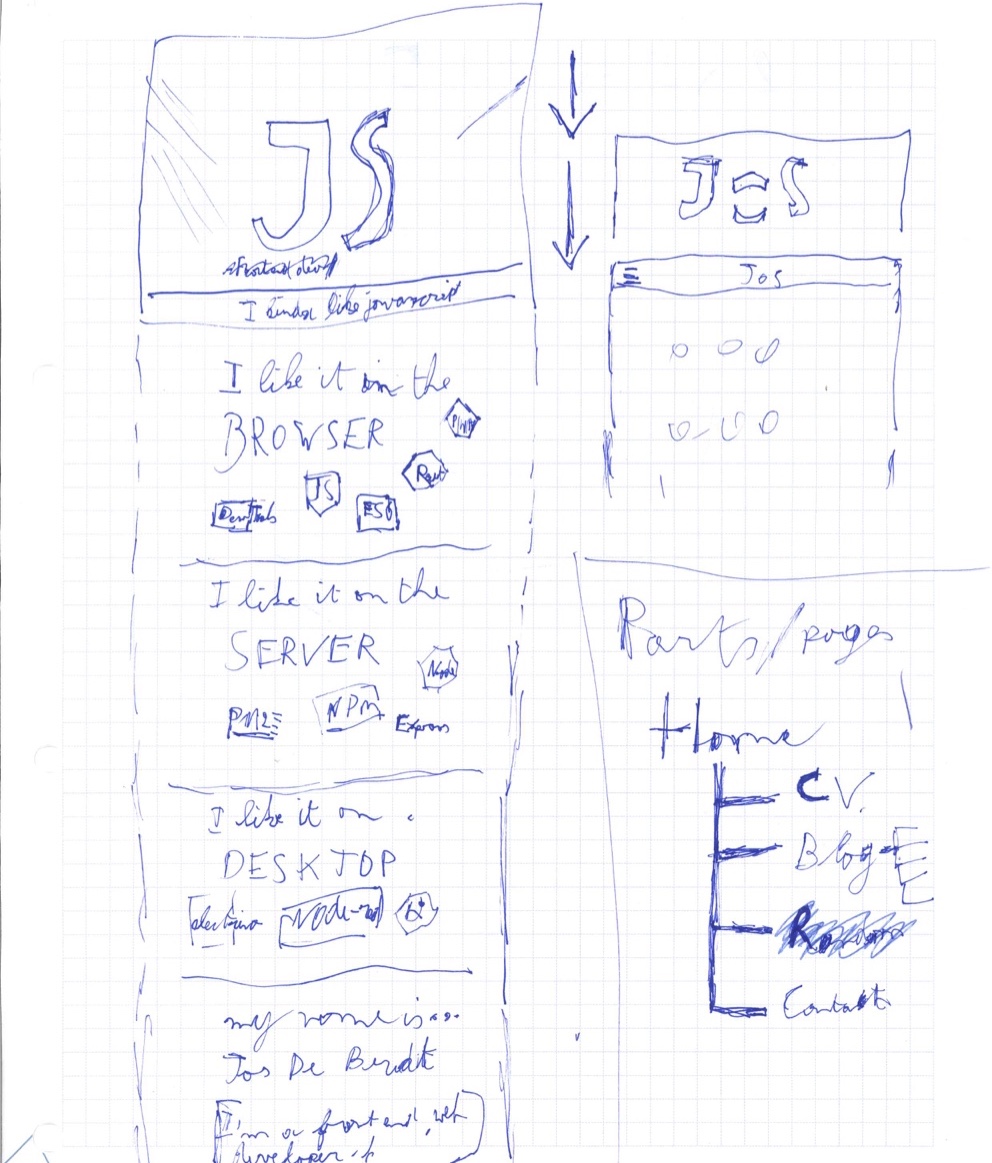 JS
I kinda like javascript
I like it in the
BROWSER
PWA
React
JS
DevTools
ES6
I like it on the
SERVER
Node
PM2
NPM
Express
I like it on
DESKTOP
electron
NODE-red
my name is...
Jos De Berdt
I'm a frontend, web
developer
J O S
Jos
Parts/pages
Home
CV.
Blog
Contact